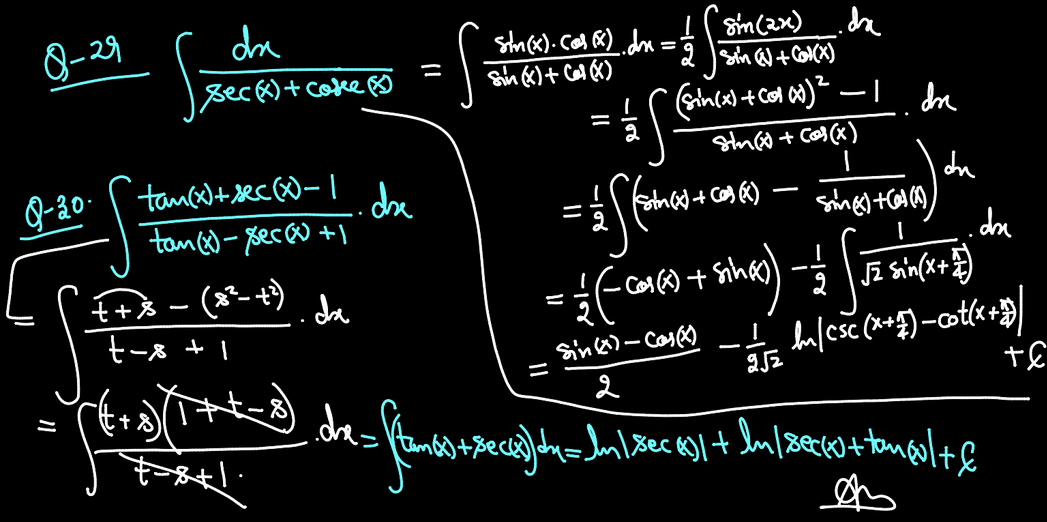 Q-29 ∫ dx / (sec(x) + cosec(x)) = ∫ sin(x)·cos(x) / (sin(x) + cos(x)) · dx = 1/2 ∫ sin(2x) / (sin(x) + cos(x)) · dx
= 1/2 ∫ ((sin(x) + cos(x))² − 1) / (sin(x) + cos(x)) · dx
= 1/2 ∫ (sin(x) + cos(x) − 1 / (sin(x) + cos(x))) dx
= 1/2 (−cos(x) + sin(x)) − 1/2 ∫ 1 / (√2 sin(x + π/4)) · dx
= (sin(x) − cos(x)) / 2 − 1/(2√2) ln|csc(x + π/4) − cot(x + π/4)| + C
Q-30. ∫ (tan(x) + sec(x) − 1) / (tan(x) − sec(x) + 1) · dx
= ∫ (t + s − (s² − t²)) / (t − s + 1) · dx
= ∫ (t + s)(1 + t − s) / (t − s + 1) · dx = ∫ (tan(x) + sec(x)) dx = ln|sec(x)| + ln|sec(x) + tan(x)| + C
Ans